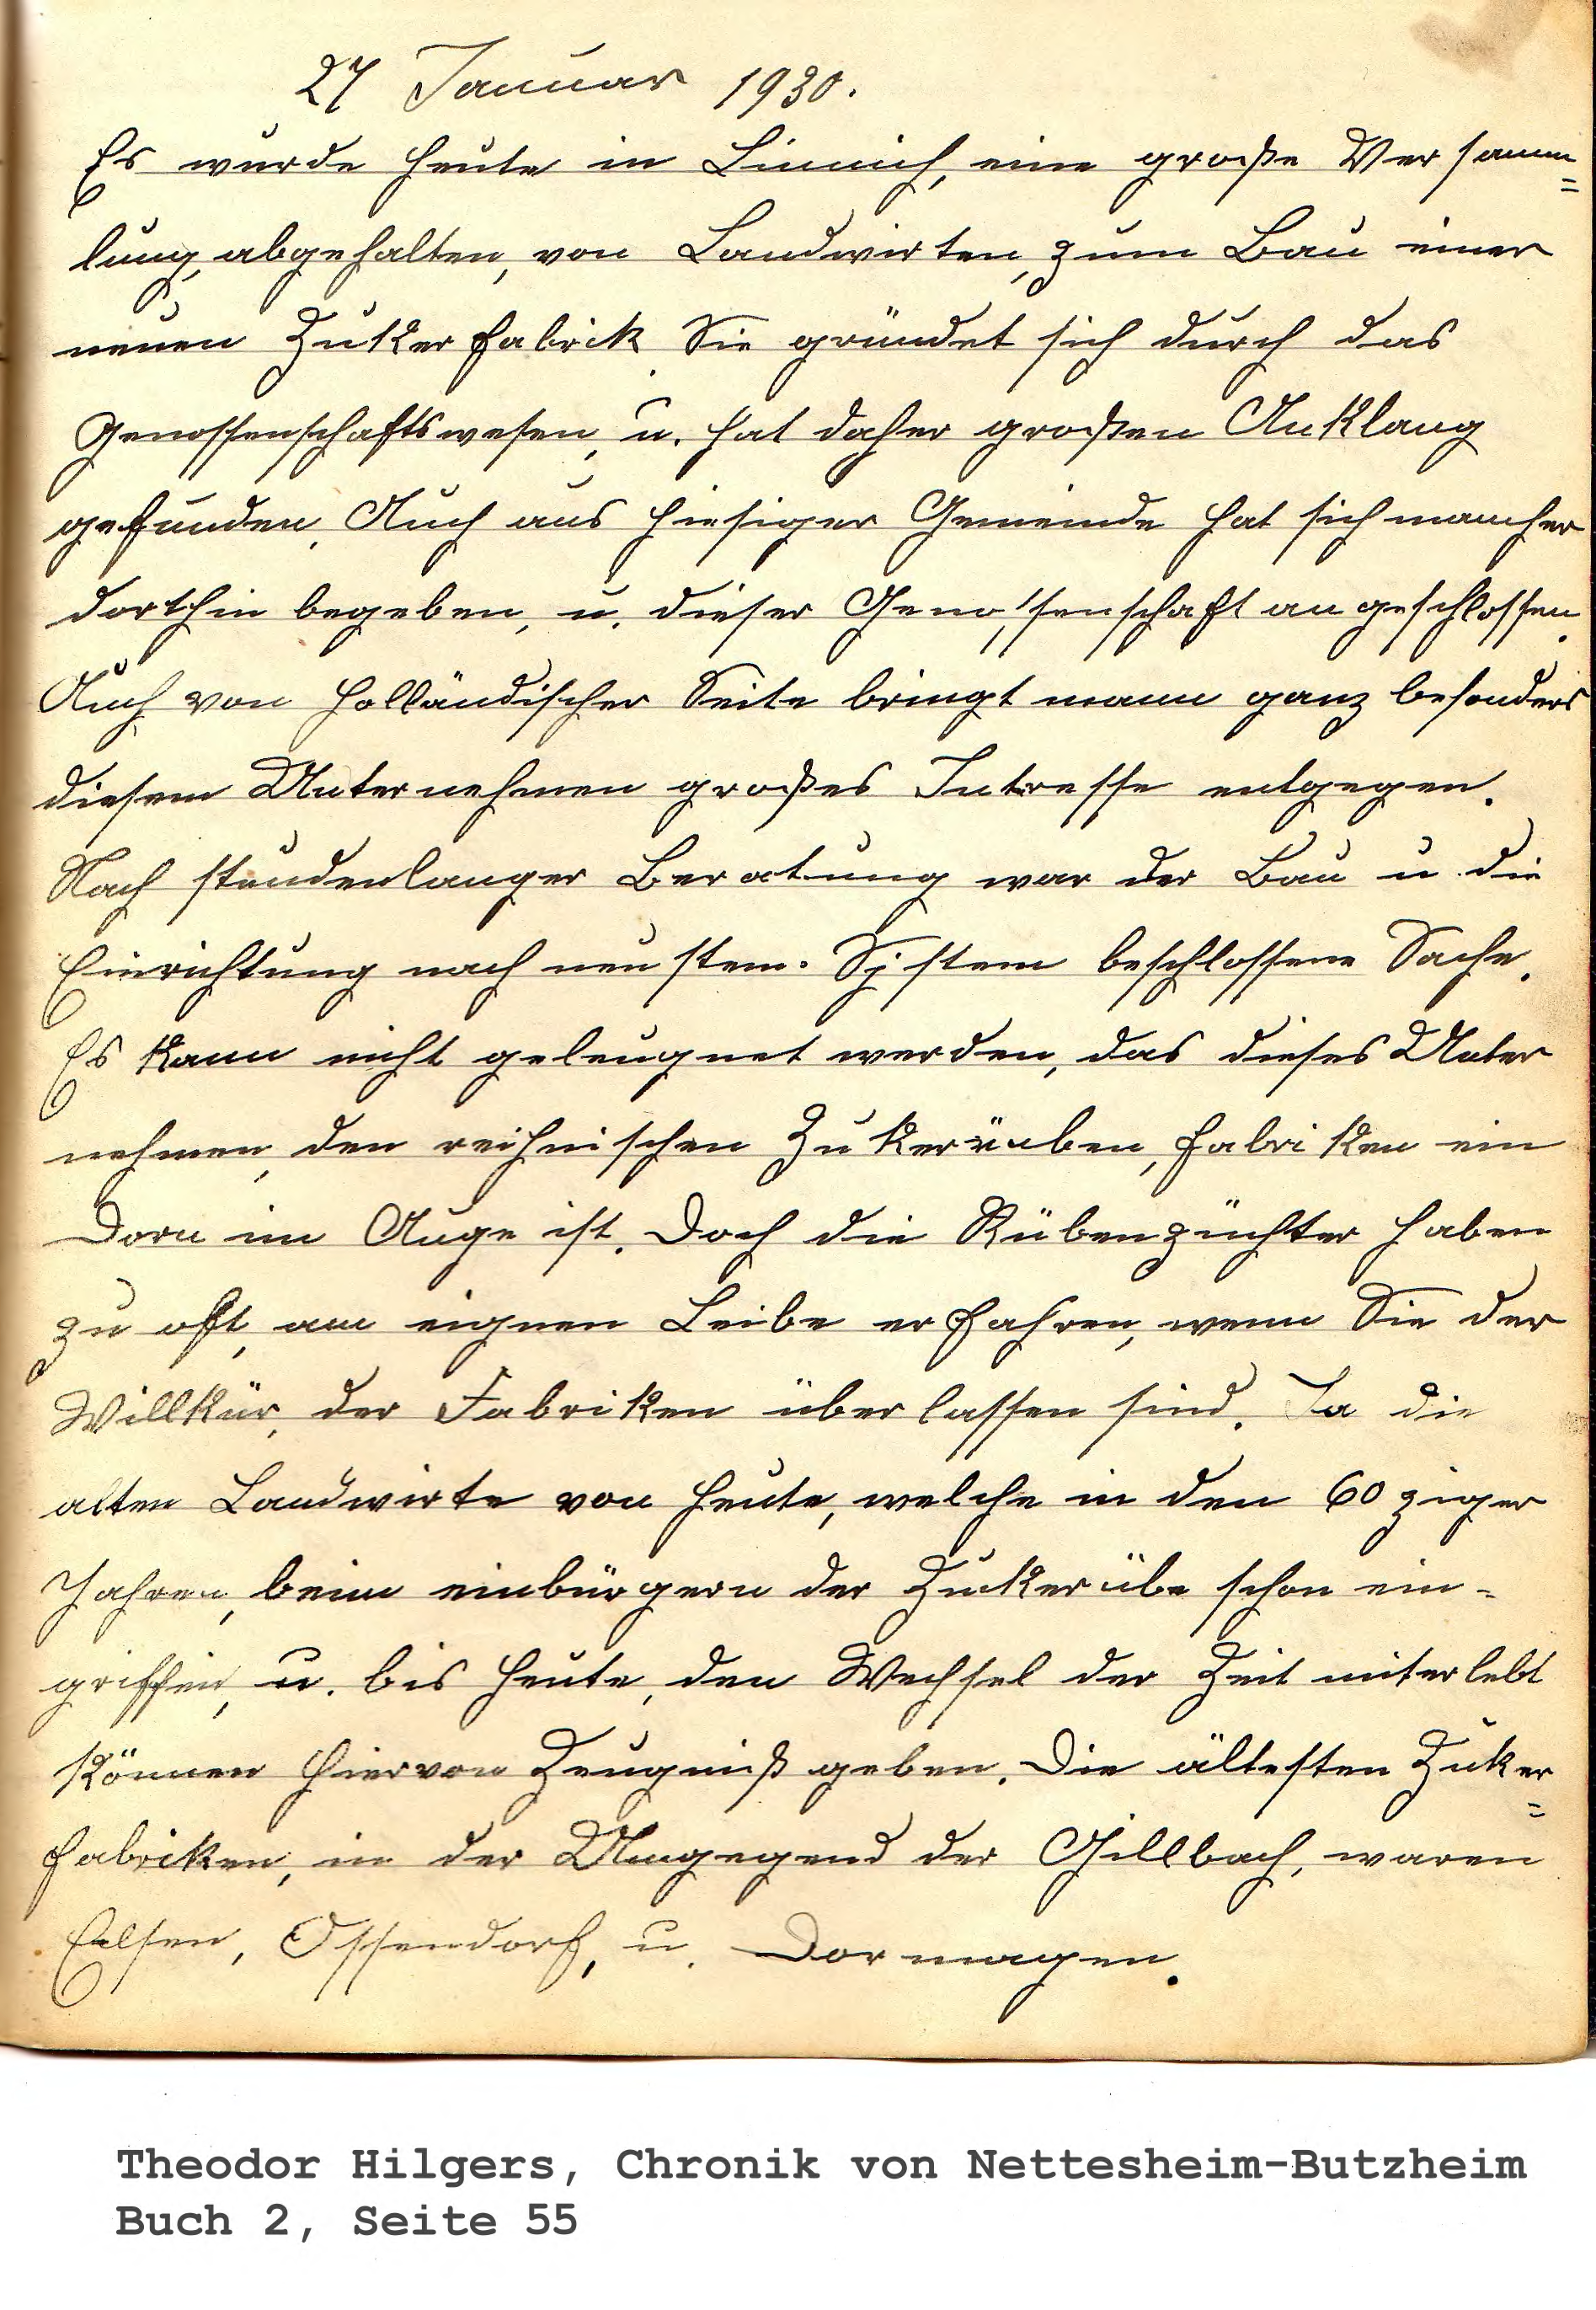 27 Januar 1930.
Es wurde heute in Linnich, eine große Versamm=
lung, abgehalten, von Landwirten, zum Bau einer
neuen Zukerfabrik. Sie gründet sich durch das
Genossenschaftswesen, u. hat daher großen Anklang
gefunden. Auch aus hiesiger Gemeinde hat sich mancher
dorthin begeben, u. dieser Genossenschaft angeschlossen.
Auch von holländischer Seite bringt mann ganz besonders
diesem Unternehmen großes Intresse entgegen.
Nach stundenlanger Beratung war der Bau u. die
Einrichtung nach neustem. Sistem beschlossene Sache.
Es kann nicht geleugnet werden, das dieses Unter
nehmen, den reihnischen Zukerrüben, fabriken ein
Dorn im Auge ist. Doch die Rübenzüchter haben
zu oft, am eignen Leibe erfahren, wenn Sie der
Willkür, der Fabriken überlassen sind. Ja die
alten Landwirte von heute, welche in den 60ziger
Jahren, beim einbürgern der Zuckerübe schon ein-
griffen, u. bis heute, den Wechsel der Zeit miterlebt
können hiervon Zeugniß geben. Die ältesten Zuker=
fabriken, in der Umgegend der Gillbach, waren
Elsen, Ossendorf, u. Dormagen.
Theodor Hilgers, Chronik von Nettesheim-Butzheim
Buch 2, Seite 55